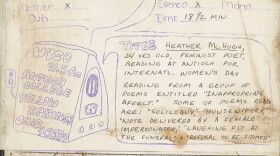 Master X
Dub
Stereo X Mono
Time 18½ MIN.
WYSO
91.5 FM
ANTIOCH
COLLEGE
YELLOW
SPRINGS
OHIO
45387
TITLE HEATHER McHUGH,
24 YRS OLD, FEMINIST POET,
READING AT ANTIOCH FOR
INTERNATL. WOMEN'S DAY
READING FROM A GROUP OF
POEMS ENTITLED "INAPPROPRIATE
AFFECT." SOME OF POEMS READ
ARE: "SOLILOQUY,"
"NOTE DELIVERED BY A FEMALE
IMPERSONATOR," "LAUGHING FIT AT
THE FUNERAL," "PROPOSAL TO RE-ISSUE"